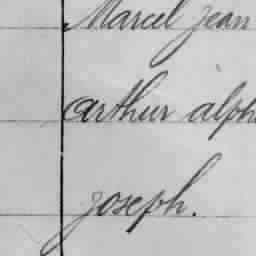 Marcel jean
arthur alph
joseph.